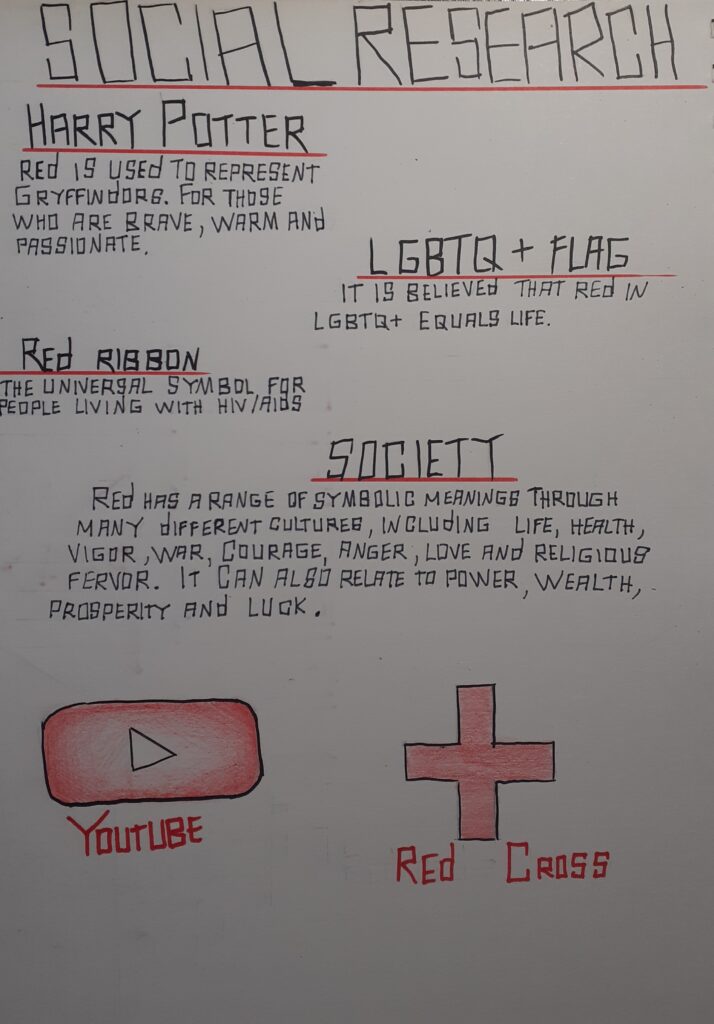 SOCIAL RESEARCH
HARRY POTTER
RED IS USED TO REPRESENT
GRYFFINDORS. FOR THOSE
WHO ARE BRAVE, WARM AND
PASSIONATE.
LGBTQ + FLAG
IT IS BELIEVED THAT RED IN
LGBTQ+ EQUALS LIFE.
RED RIBBON
THE UNIVERSAL SYMBOL FOR
PEOPLE LIVING WITH HIV/AIDS
SOCIETY
RED HAS A RANGE OF SYMBOLIC MEANINGS THROUGH
MANY DIFFERENT CULTURES, INCLUDING LIFE, HEALTH,
VIGOR, WAR, COURAGE, ANGER, LOVE AND RELIGIOUS
FERVOR. IT CAN ALSO RELATE TO POWER, WEALTH,
PROSPERITY AND LUCK.
YOUTUBE
RED CROSS